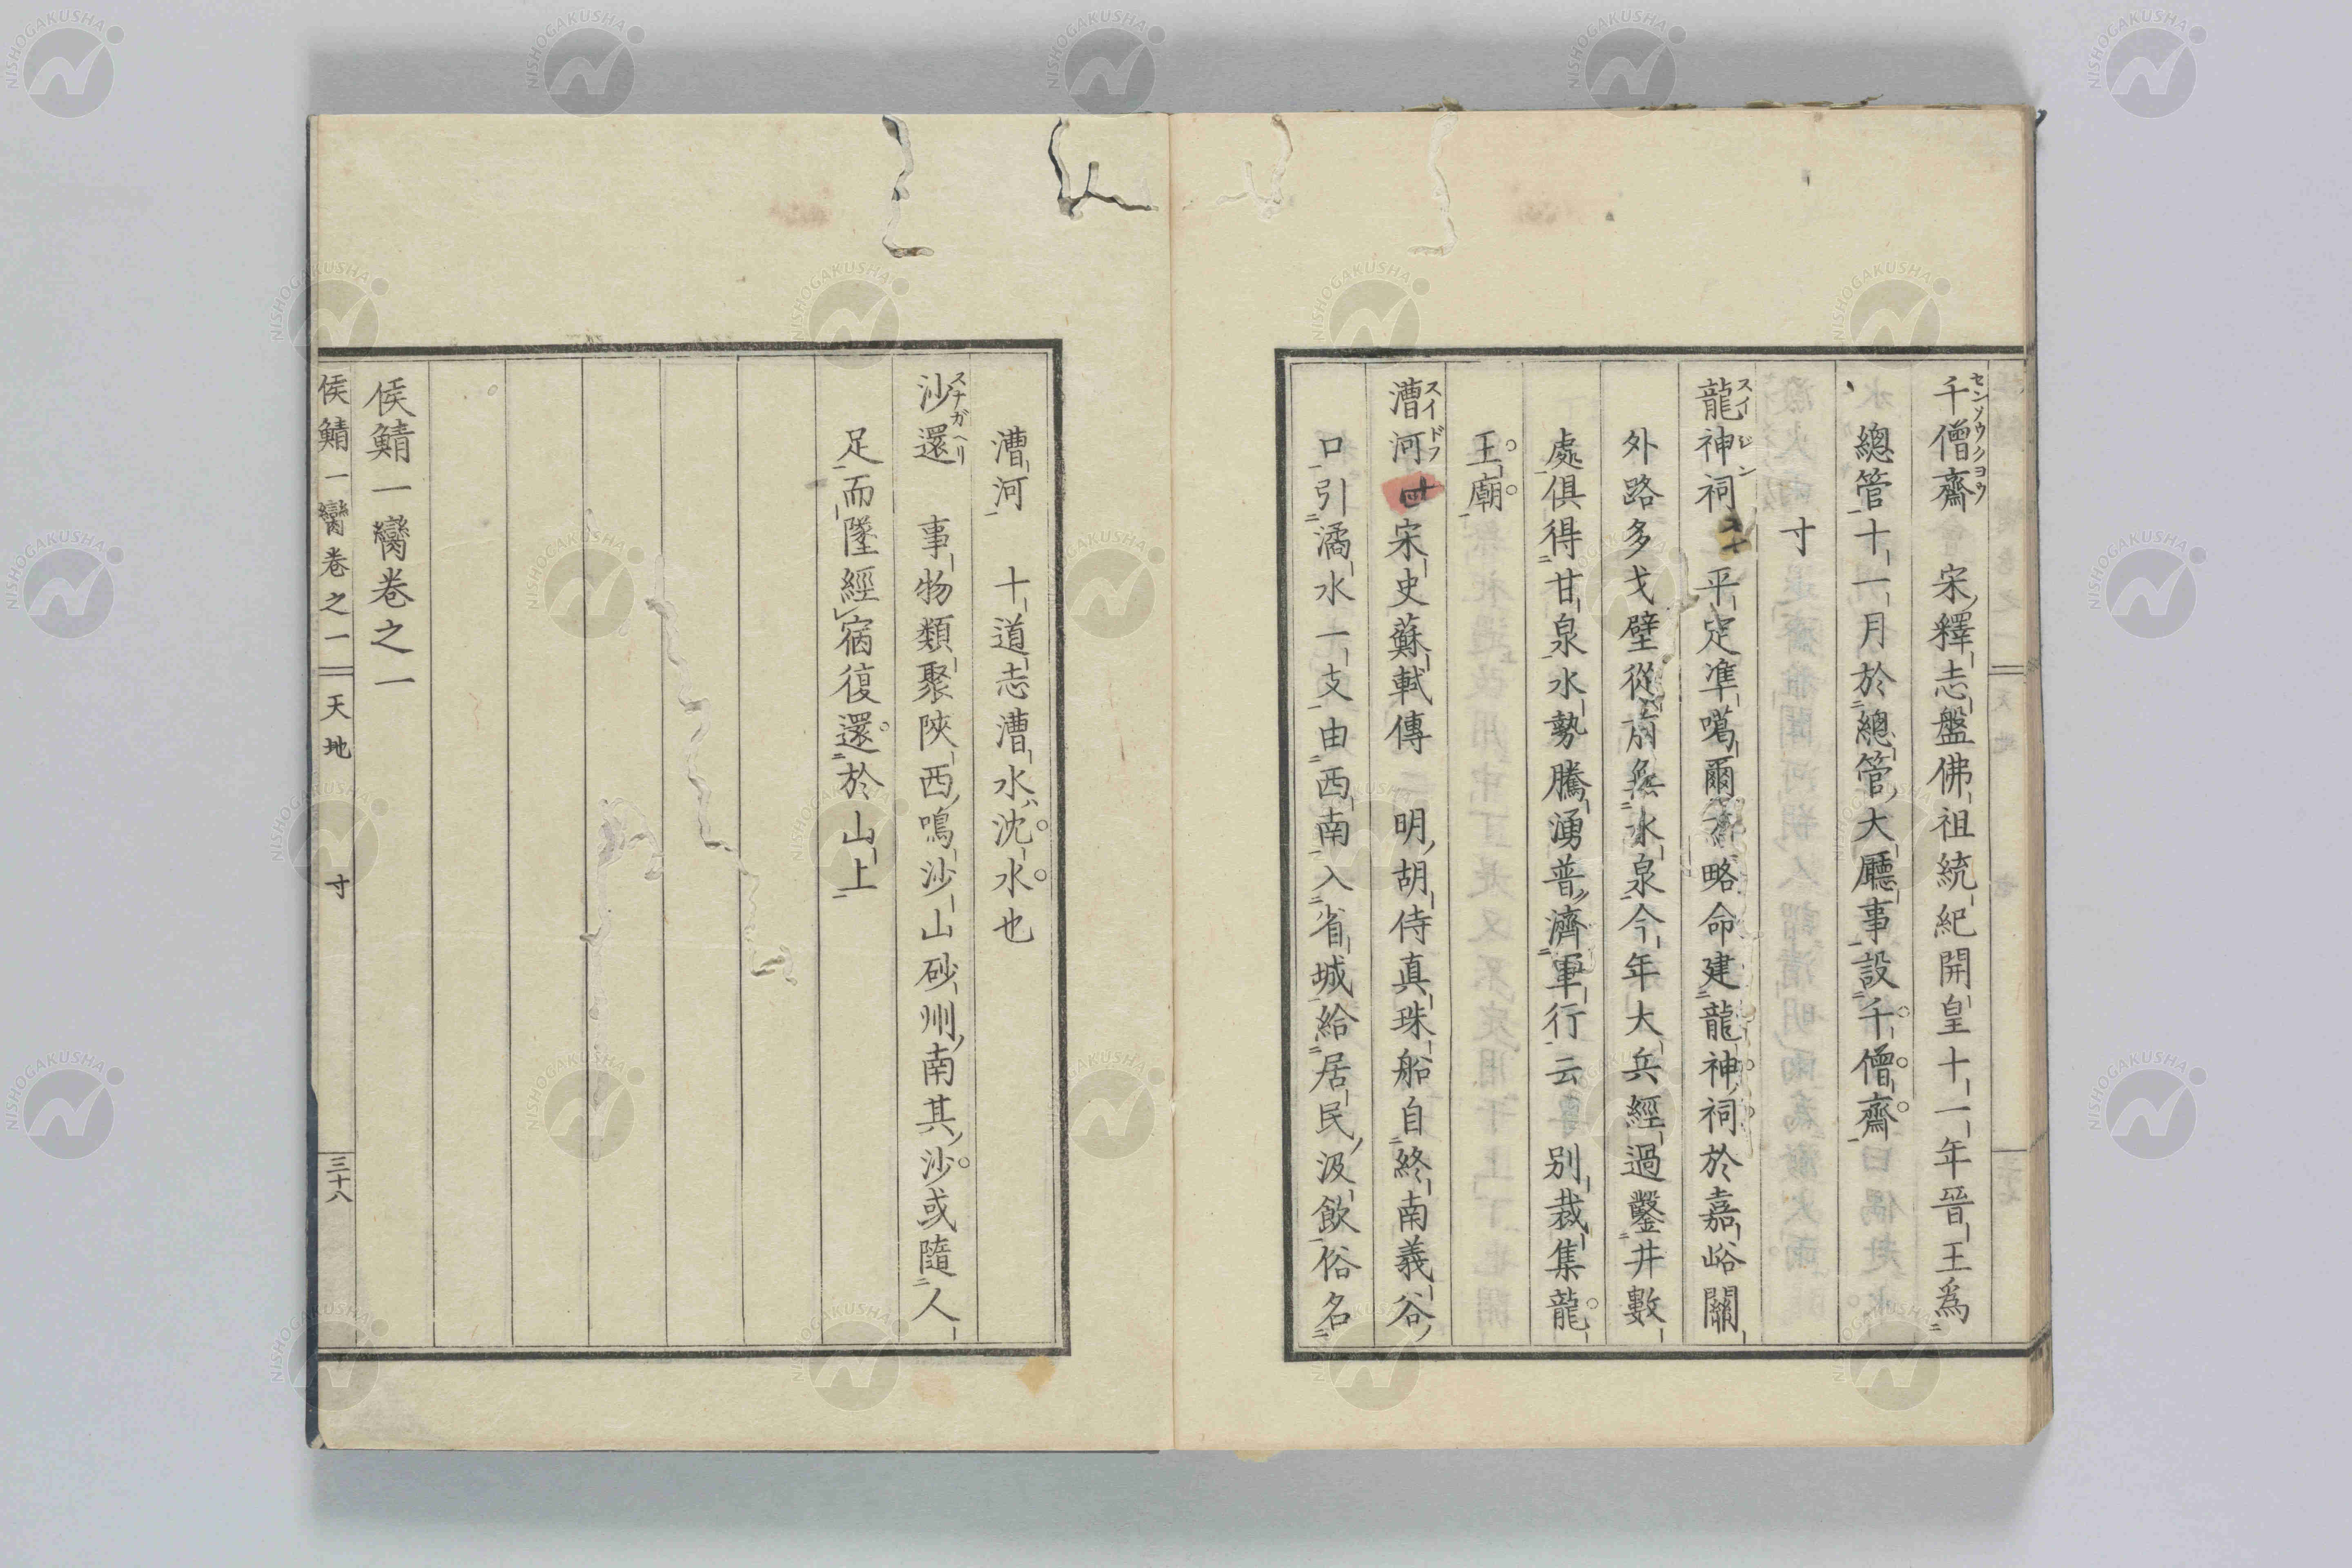 千僧齋　宋釋志盤佛祖統紀開皇十一年晉王爲
總管十一月於總管大廳事設千僧齋
寸
龍神祠　平定準噶爾方略命建龍神祠於嘉峪關
外路多戈壁從前無水泉今年大兵經過鑿井數
處俱得甘泉水勢騰湧普濟軍行云　別裁集龍
王廟
漕河　宋史蘇軾傳　明胡侍真珠船自終南義谷
口引潏水一支由西南入省城給居民汲飲俗名
漕河　十道志漕水沈水也
沙還　事物類聚陝西鳴沙山砂州南其沙或隨人
足而墜經宿復還於山上
侯鯖一臠卷之一
侯鯖一臠卷之一　天地　寸　三十八